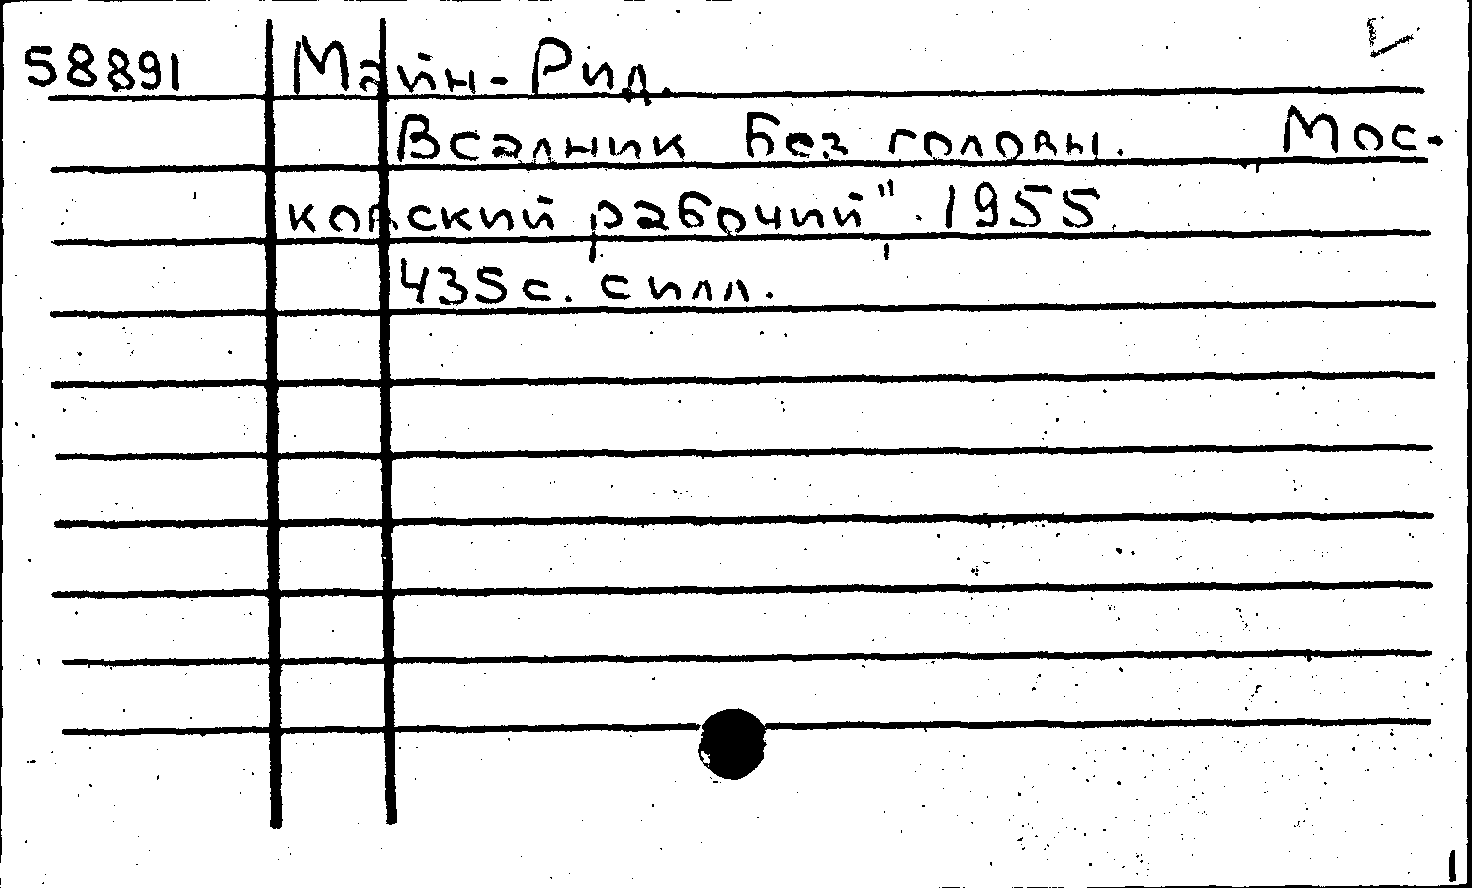 58891 Майн-Рид.
Всадник без головы. Мос-
ковский рабочий". 1955
435 с. с илл.